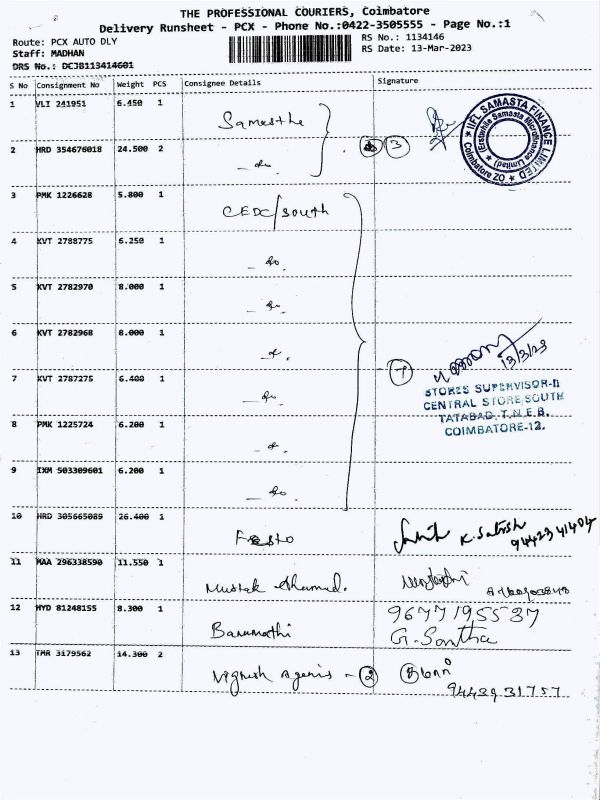 THE PROFESSIONAL COURIERS, Coimbatore
Delivery Runsheet - PCX - Phone No.:0422-3505555 - Page No.:1
Route: PCX AUTO DLY
Staff: MADHAN
DRS No.: DCJB113414601
RS No.: 1134146
RS Date: 13-Mar-2023
S No Consignment No Weight PCS Consignee Details Signature
1 VLI 241951 6.450 1 Samastha
IIFL SAMASTA FINANCE LIMITED
(Erstwhile Samasta Microfinance Limited)
Coimbatore ZO
2 HRD 354676018 24.500 2 - do. 3
3 PMK 1226628 5.800 1 CEDC/South
4 KVT 2788775 6.250 1 - do.
5 KVT 2782970 8.000 1 - do.
6 KVT 2782968 8.000 1 - do.
13/3/23
7 KVT 2787275 6.400 1 - do. 7
STORES SUPERVISOR-II
CENTRAL STORE, SOUTH
TATABAD, T.N.E.B.
COIMBATORE-12.
8 PMK 1225724 6.200 1 - do.
9 IXM 503309601 6.200 1 - do.
10 HRD 305665089 26.400 1 Festo K. Satish
9442341404
11 MAA 296338590 11.550 1 Mustak Ahamed.
12 HYD 81248155 8.300 1 Banumathi 9677195587
G. Santha
13 TMR 3179562 14.300 2 Vignesh Agenis - 2
9443931757